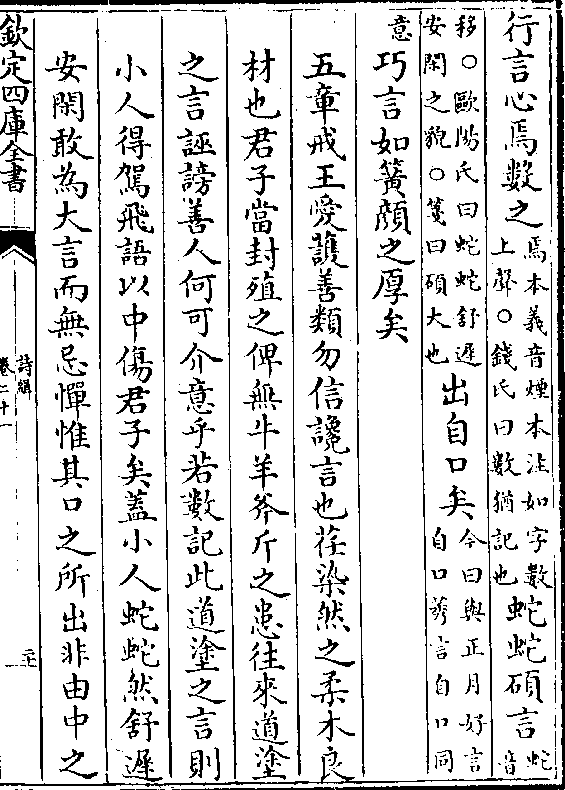 行言心焉數之焉本義音煙本注如字數上聲○錢氏曰數猶記也蛇蛇碩言蛇音
移○歐陽氏曰蛇蛇舒遲安閑之貌○箋曰碩大也出自口矣今曰與正月好言自口莠言自口同
意巧言如簧顔之厚矣
五章戒王愛護善類勿信讒言也荏染然之柔木良
材也君子當封殖之俾無牛羊斧斤之患往來道塗
之言誣謗善人何可介意乎若數記此道塗之言則
小人得駕飛語以中傷君子矣蓋小人蛇蛇然舒遲
安閑敢為大言而無忌憚惟其口之所出非由中之
欽定四庫全書
詩緝
卷二十一